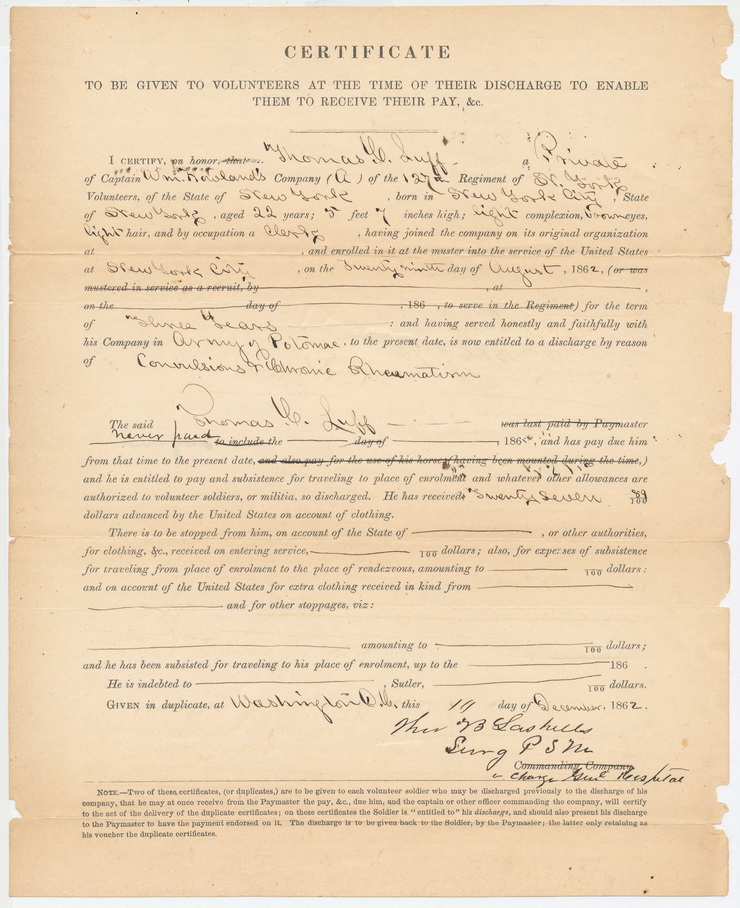 CERTIFICATE
TO BE GIVEN TO VOLUNTEERS AT THE TIME OF THEIR DISCHARGE TO ENABLE
THEM TO RECEIVE THEIR PAY, &c.
I CERTIFY, on honor, that Thomas C. Luff a Private
of Captain Wm. Howland's Company (A) of the 127th Regiment of N. York
Volunteers, of the State of New York , born in New York City , State
of New York , aged 22 years; 5 feet 7 inches high; light complexion, brown eyes,
light hair, and by occupation a Clerk , having joined the company on its original organization
at , and enrolled in it at the muster into the service of the United States
at New York City , on the Twenty ninth day of August , 1862, (or was
mustered in service as a recruit, by , at ,
on the day of , 186 , to serve in the Regiment) for the term
of Three Years : and having served honestly and faithfully with
his Company in Army of Potomac to the present date, is now entitled to a discharge by reason
of Convulsions & Chronic Rheumatism
The said Thomas C. Luff was last paid by Paymaster
never paid to include the day of , 186 , and has pay due him
from that time to the present date, and also pay for the use of his horse, (having been mounted during the time,)
and he is entitled to pay and subsistence for traveling to place of enrolment and whatever other allowances are
authorized to volunteer soldiers, or militia, so discharged. He has received Twenty Seven 89/100
dollars advanced by the United States on account of clothing.
There is to be stopped from him, on account of the State of , or other authorities,
for clothing, &c., received on entering service, /100 dollars; also, for expenses of subsistence
for traveling from place of enrolment to the place of rendezvous, amounting to /100 dollars:
and on account of the United States for extra clothing received in kind from
and for other stoppages, viz:
amounting to /100 dollars;
and he has been subsisted for traveling to his place of enrolment, up to the 186 .
He is indebted to , Sutler, /100 dollars.
GIVEN in duplicate, at Washington D.C. this day of December, 1862.
Surg
Commanding Company
in charge Genl Hospital
NOTE.—Two of these certificates, (or duplicates,) are to be given to each volunteer soldier who may be discharged previously to the discharge of his
company, that he may at once receive from the Paymaster the pay, &c., due him, and the captain or other officer commanding the company, will certify
to the act of the delivery of the duplicate certificates; on these certificates the Soldier is "entitled to" his discharge, and should also present his discharge
to the Paymaster to have the payment endorsed on it. The discharge is to be given back to the Soldier, by the Paymaster; the latter only retaining as
his voucher the duplicate certificates.